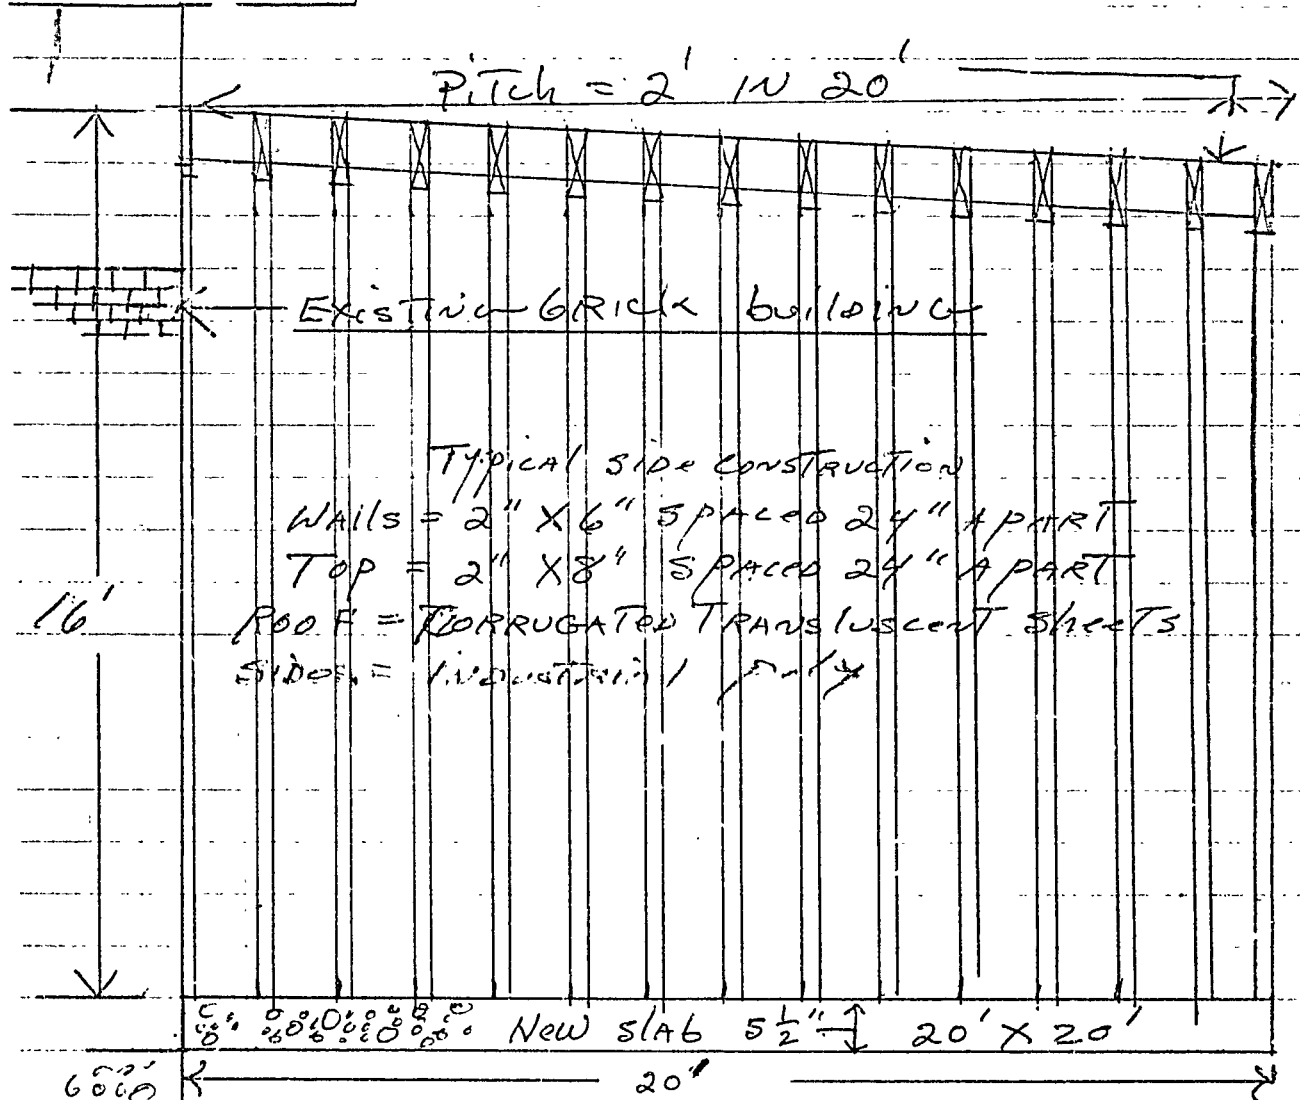 PiTch = 2' IN 20'
ExisTING bRICK buildING
TypicAl side consTRUCTION
WAlls = 2" X 6" SpAced 24" ApART
Top = 2" X 8" SpAced 24" ApART
ROOF = CORRUGATED TRANSluscenT SheeTs
Sides = INdusTRiAl poly
16'
New slAb 5 1/2" 20' X 20'
20'